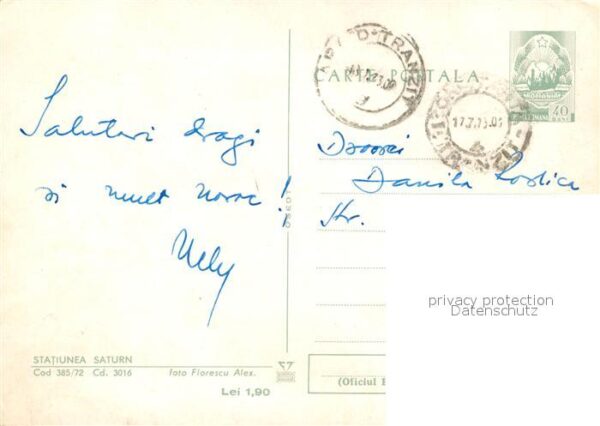 CARTE POSTALA
40
BANI
17.7.73.09
Salutări dragi
și mult noroc!
Nely
Danila Rodica
Str.
privacy protection
Datenschutz
STAȚIUNEA SATURN
Cod 385/72 Cd. 3016 foto Florescu Alex.
Lei 1,90
(Oficiul